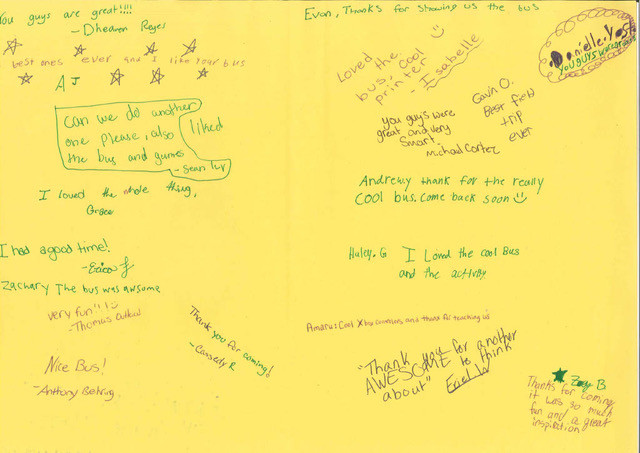 You guys are great!!!!
- Dheeren Reyes
best ones ever and I like your bus
AJ
Can we do another
one please, also
liked
the bus and games
- Sean
I loved the whole thing.
Grace
I had a good time!
- Erica
Zachary The bus was awsome
very fun!!
- Thomas
Thank you for
coming!
- Cassedy R
Nice Bus!
- Anthony Behring
Evan, Thanks for showing us the bus
Loved the
bus. Cool
printer
- Isabelle
Danielle.
YOU GUYS WERE
Gavin O.
Best field
trip
ever
you guys were
great and very
Smart.
Michael Cortez
Andrew thank for the really
COOL bus. Come back soon
Haley. G I Loved the cool Bus
and the activity
Amaru: Cool controllers and thanks for teaching us
"Thank you for another
AWESOME to think
about"
Zoey B
Thanks for coming
it was so much
fun and a great
inspiration